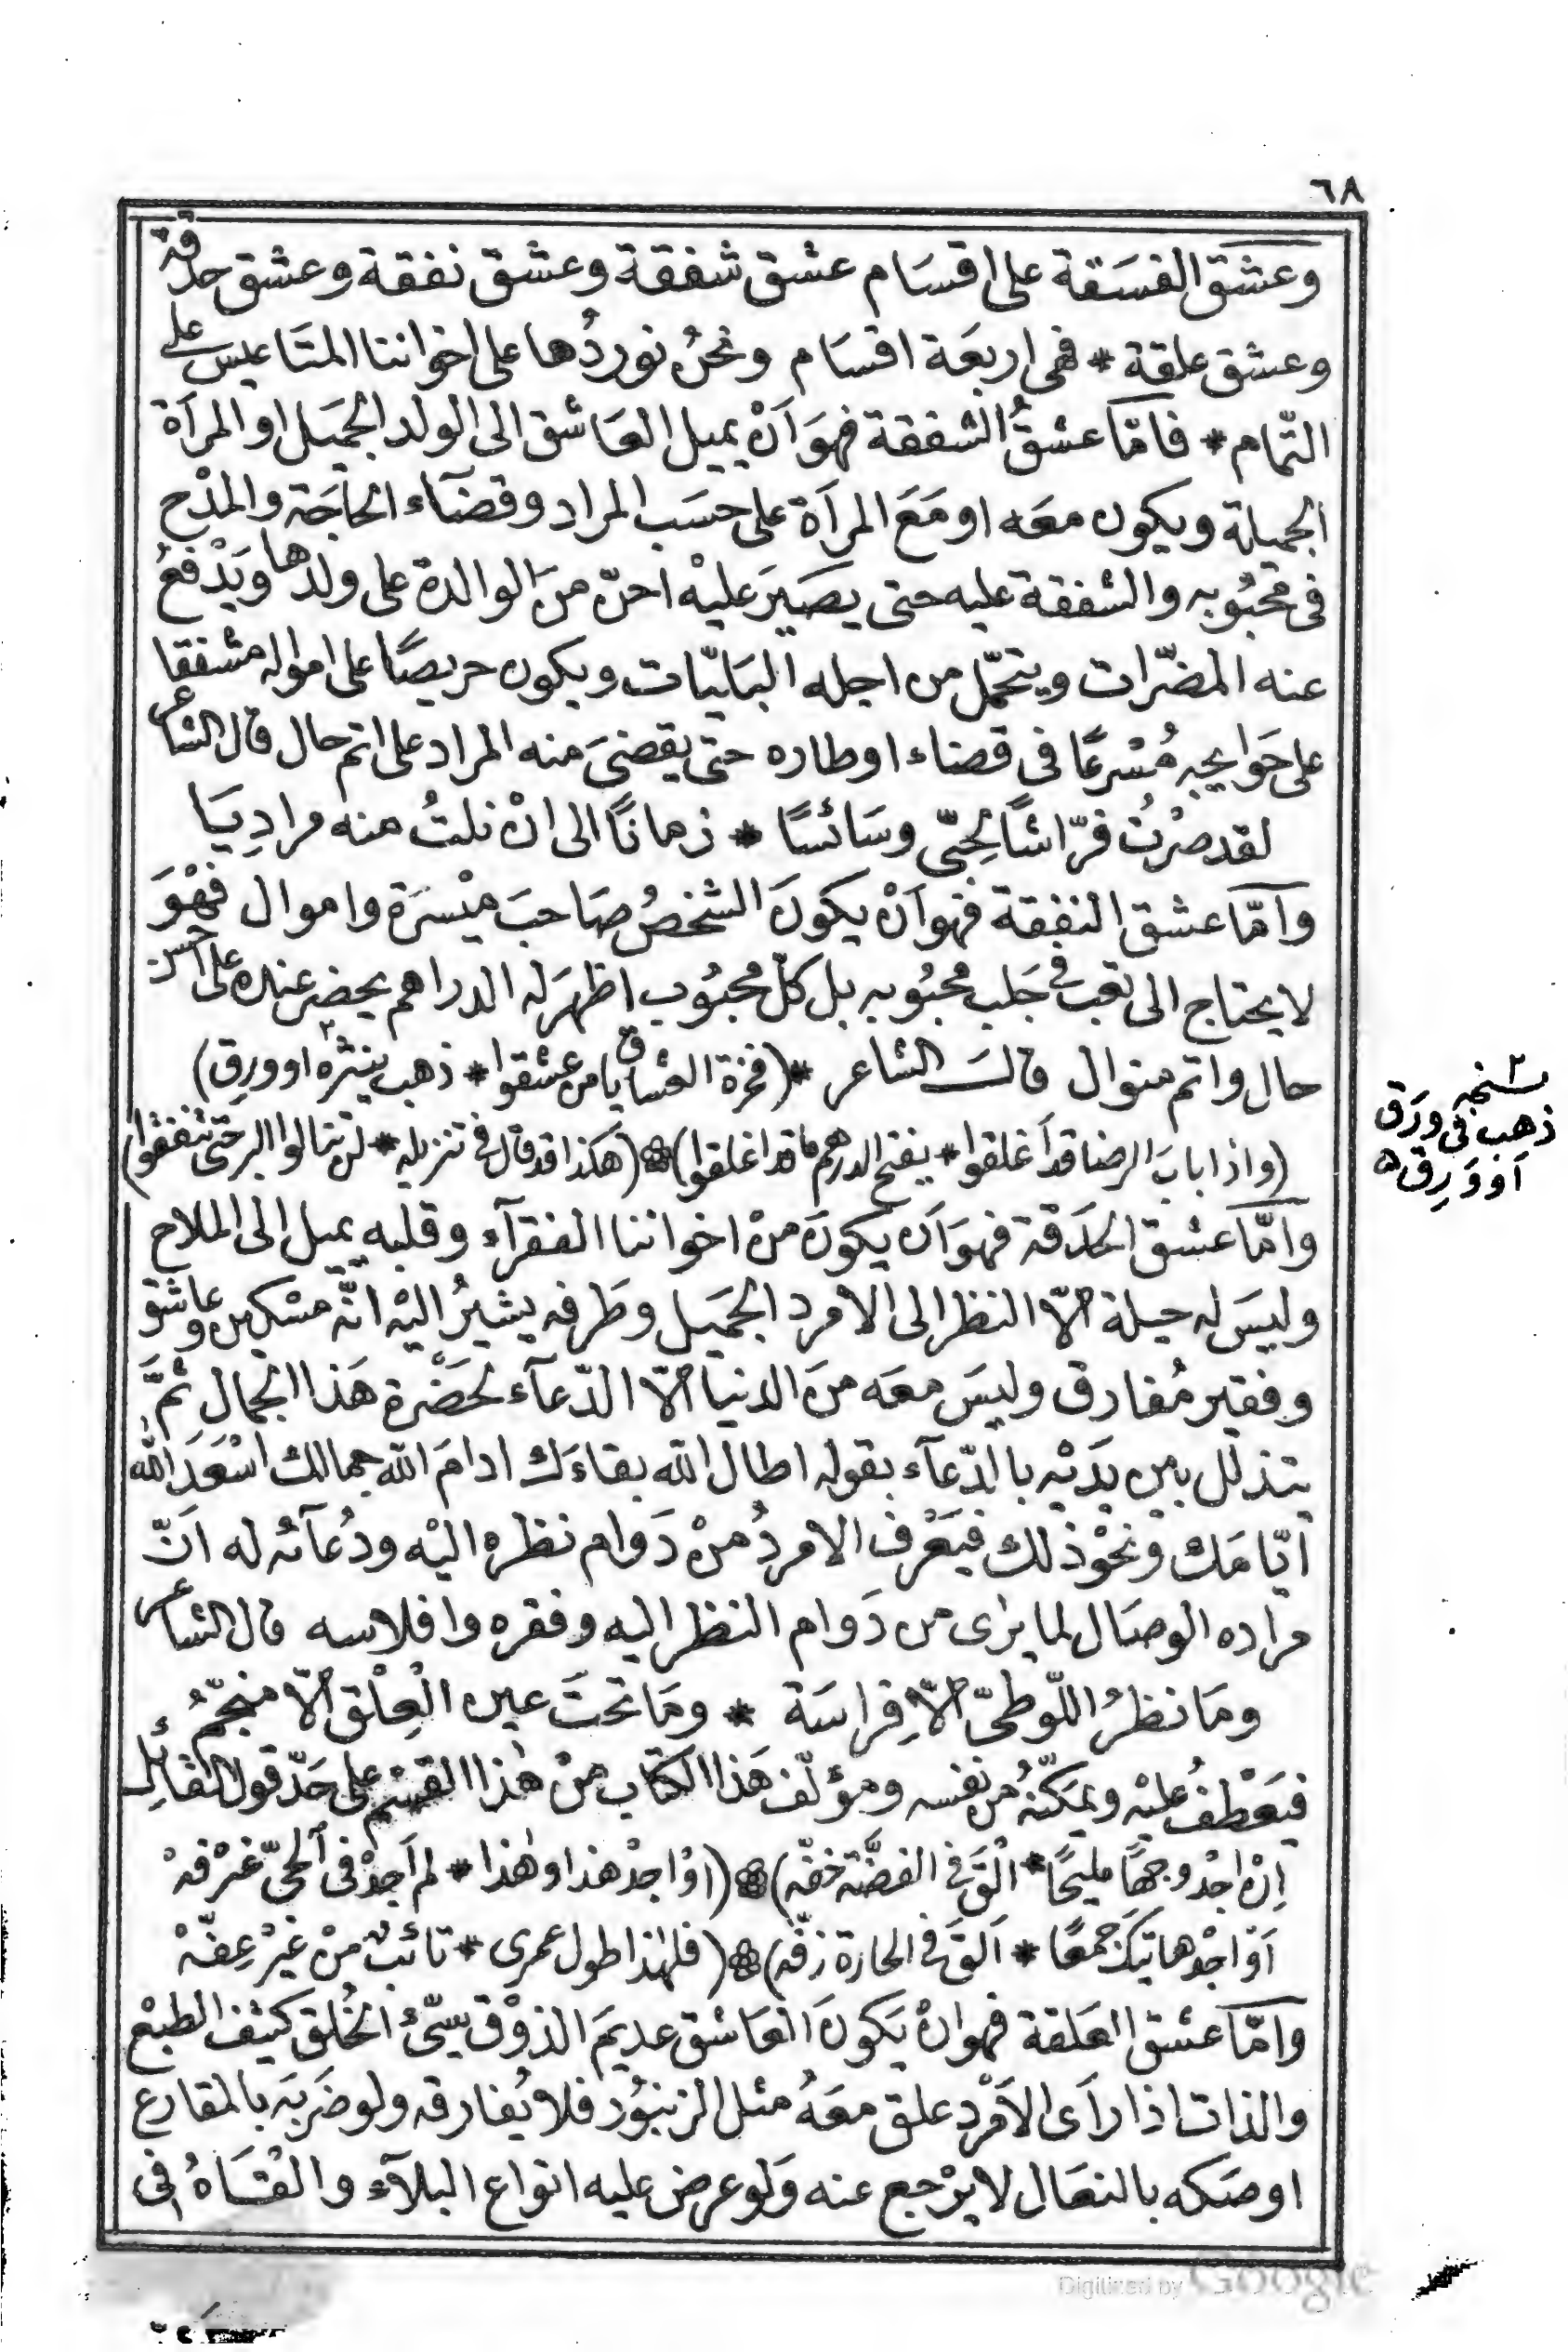 ٦٨
وعشق الفسَقة على اقسَام عشق شفقة وعشق نفقة وعشق حدقة
وعشق علقة * فهى اربعَة اقسَام ونحنُ نوردُها على اخواننا المتَاعيس على
التّمام * فامّا عشقُ الشفقة فهوَ اَنْ يميل العَاشق الى الولد الجمَيل او المرأة
الجميلة ويكون معَه او مَعَ المرأة على حسَب المراد وقضآء الحاَجَة والمدْح
فى محبُوبه والشفقة عليه حتى يصَيرَ عليْه احنّ منَ الوالدة على ولدها ويَدْفعُ
عنه المضرّات ويتحمّل من اجله البَليّات ويكون حريصًا على امواله مشفقا
على حَوايجه مُسْرعًا فى قضاء اوطاره حتى يقضىَ منه المراد على اتم حال قال الشاعر
لقد صرْتُ فرّاشًا لِحِبّى وسَائسًا * زمانًا الى انْ نلتُ منه مرادِيَا
وامّا عشق النفقة فهو اَنْ يكونَ الشخصُ صَاحبَ ميْسرَة واموال فهْوَ
لا يحتاج الى تعب فى جَلب محبُوبه بل كلّ محبُوب اظهرَ له الدراهم يحضر عنده على احسن
حال واتم منوال قالَ الشاعر * (فخزة العشاق يا من عشقوا * ذهب ينثره ٢ او ورِق)
(واذا بابَ الرضا قد اَغلقوا * يفتح الدرهم ما قد اغلقوا) (هكذا قد قال فى تنزيله * لن تنالوا البر حتى تنفقوا)
٢ نسخه
ذهب فى ورَق
اَو وَرِق ه
وامّا عشق الحَدَقة فهوَ اَن يكونَ منْ اخواننا الفقرآء وقلبه يميل الى الملاح
وليسَ له حيلة الّا النظر الى الامرد الجمَيل وطَرفه يشيرُ اليْه انّه مسْكين وعاشق
وفقير مُفارق وليسَ معَه منَ الدنيا الّا الدّعآء لحَضْرة هَذا الجمال ثمَّ
يتذلل بين يدَيْه بالدّعآء بقوله اطال اللّه بقاءَك ادامَ اللّه جمالك اسْعَدَ اللّه
ايّامَك ونحْو ذلك فيَعْرف الامردُ منْ دَوام نظره اليْه ودُعآئه له اَنّ
مراده الوصَال لما يرٰى من دَوام النظر اليه وفقره وافلاسه قال الشاعر
ومَا نظرُ اللّوطىّ الّا فِراسَة * ومَا تحتَ عين الْعِلْق الّا منجّمُ
فيَعْطفُ عليْه ويمَكّنُهُ من نفسه ومؤلّف هَذا الكتاب منْ هٰذا القسْم على حَدّ قول القائل
اِنْ اجدْ وجهًا مليحًا * اَلْقَ فى الفضّة خفّه) (اوْ اجدْ هذا وهٰذا * لم اَجدْ فى الحىّ غرْفهْ
اَوْ اجدْ هاتيك جَمعًا * اَلقَ فى الحارة زفّه) (فلهٰذا طول عمرى * تائبٌ منْ غيْر عِفّهْ
وامّا عشق العَلقة فهو انْ يَكونَ العَاشق عديمَ الذوْق سيّئ الخُلق كثيف الطبْع
والذات اذا رَاَى الاَمْرَد علق معَهُ مثل الزنبُور فلا يُفارقه ولو ضرَبَه بالمقارع
او صَكه بالنعَال لا يرْجع عنه وَلو عرض عليه انواع البلآء والقَاهُ فى
Digitized by Google